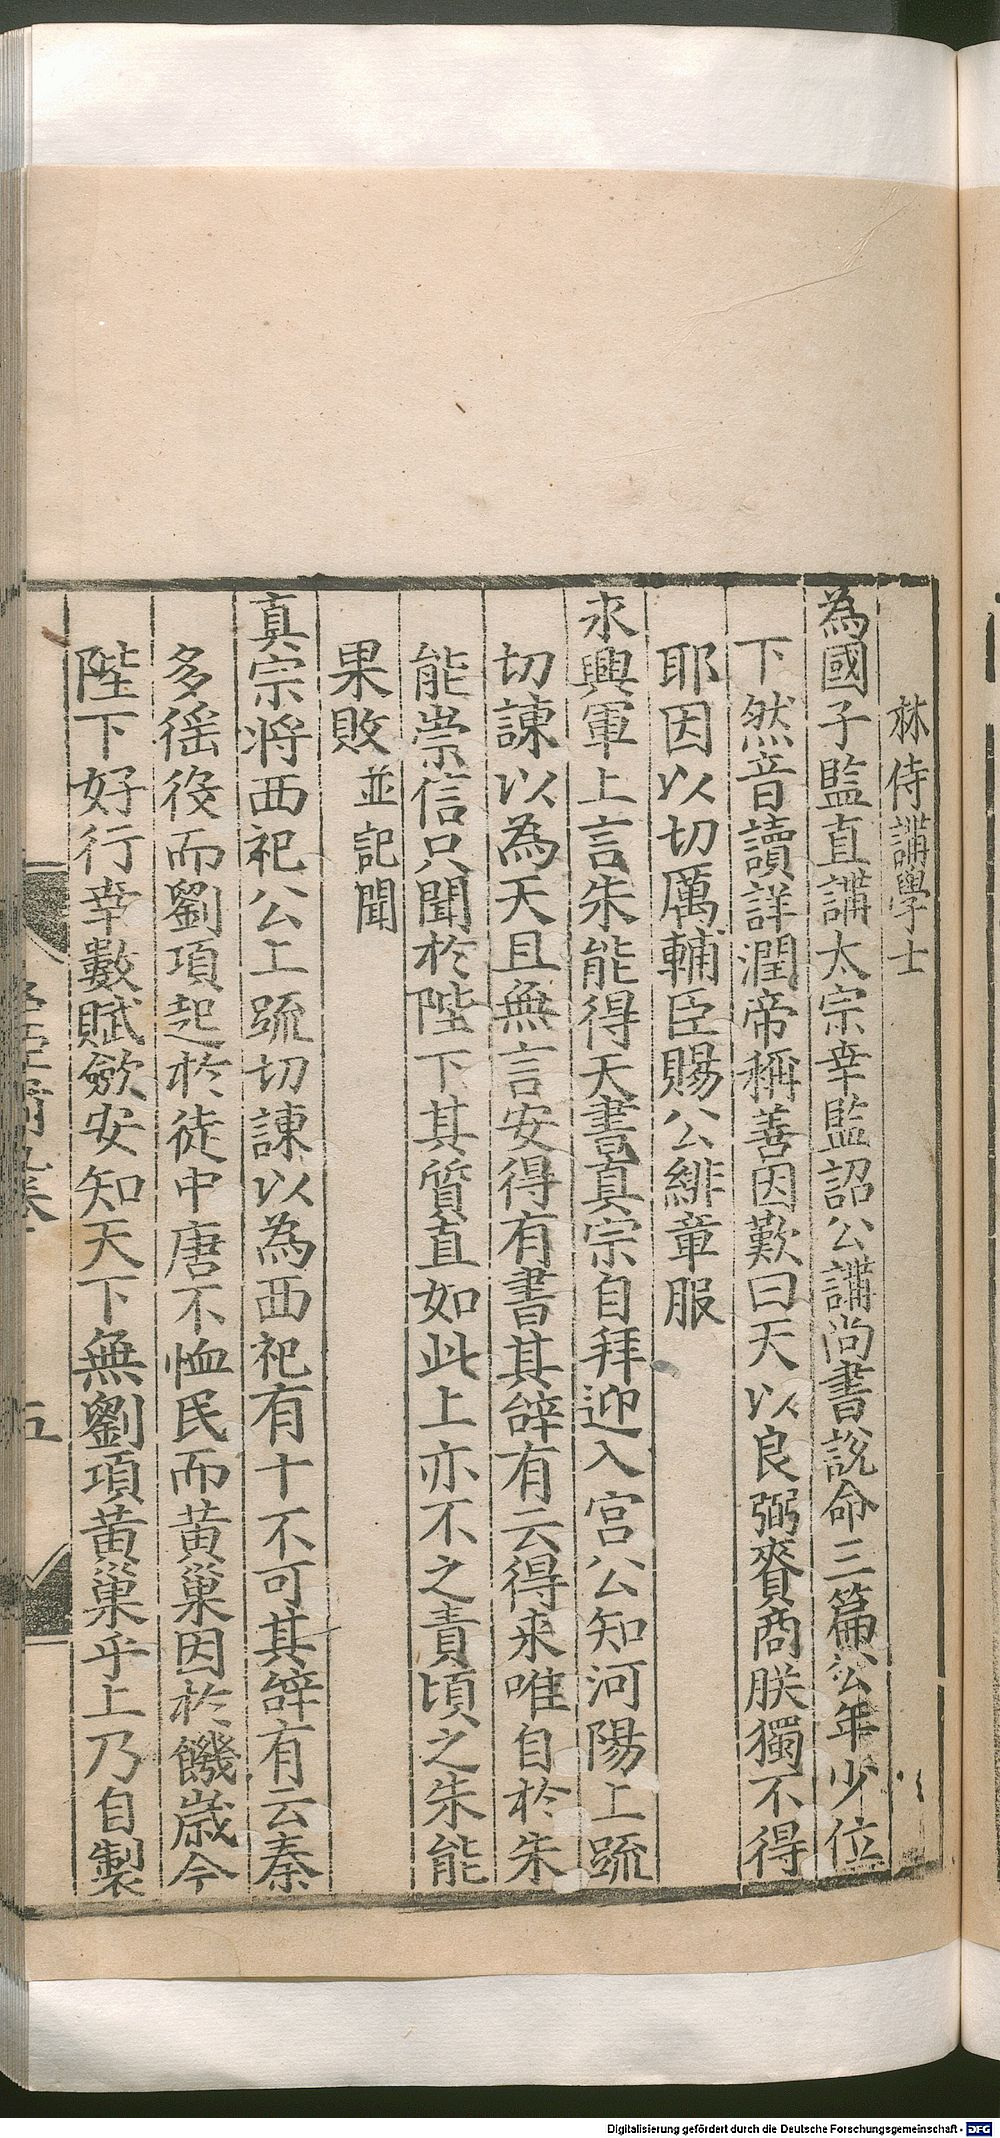 林侍講學士
為國子監直講太宗幸監詔公講尚書說命三篇公年少位
下然音讀詳潤帝稱善因歎曰天以良弼賚商朕獨不得
耶因以切厲輔臣賜公緋章服
永興軍上言朱能得天書真宗自拜迎入宮公知河陽上疏
切諫以為天且無言安得有書其辭有云得來唯自於朱
能崇信只聞於陛下其質直如此上亦不之責頃之朱能
果敗並記聞
真宗將西祀公上疏切諫以為西祀有十不可其辭有云秦
多徭役而劉項起於徒中唐不恤民而黃巢因於饑歲今
陛下好行幸數賦斂安知天下無劉項黃巢乎上乃自製
五
Digitalisierung gefördert durch die Deutsche Forschungsgemeinschaft - DFG